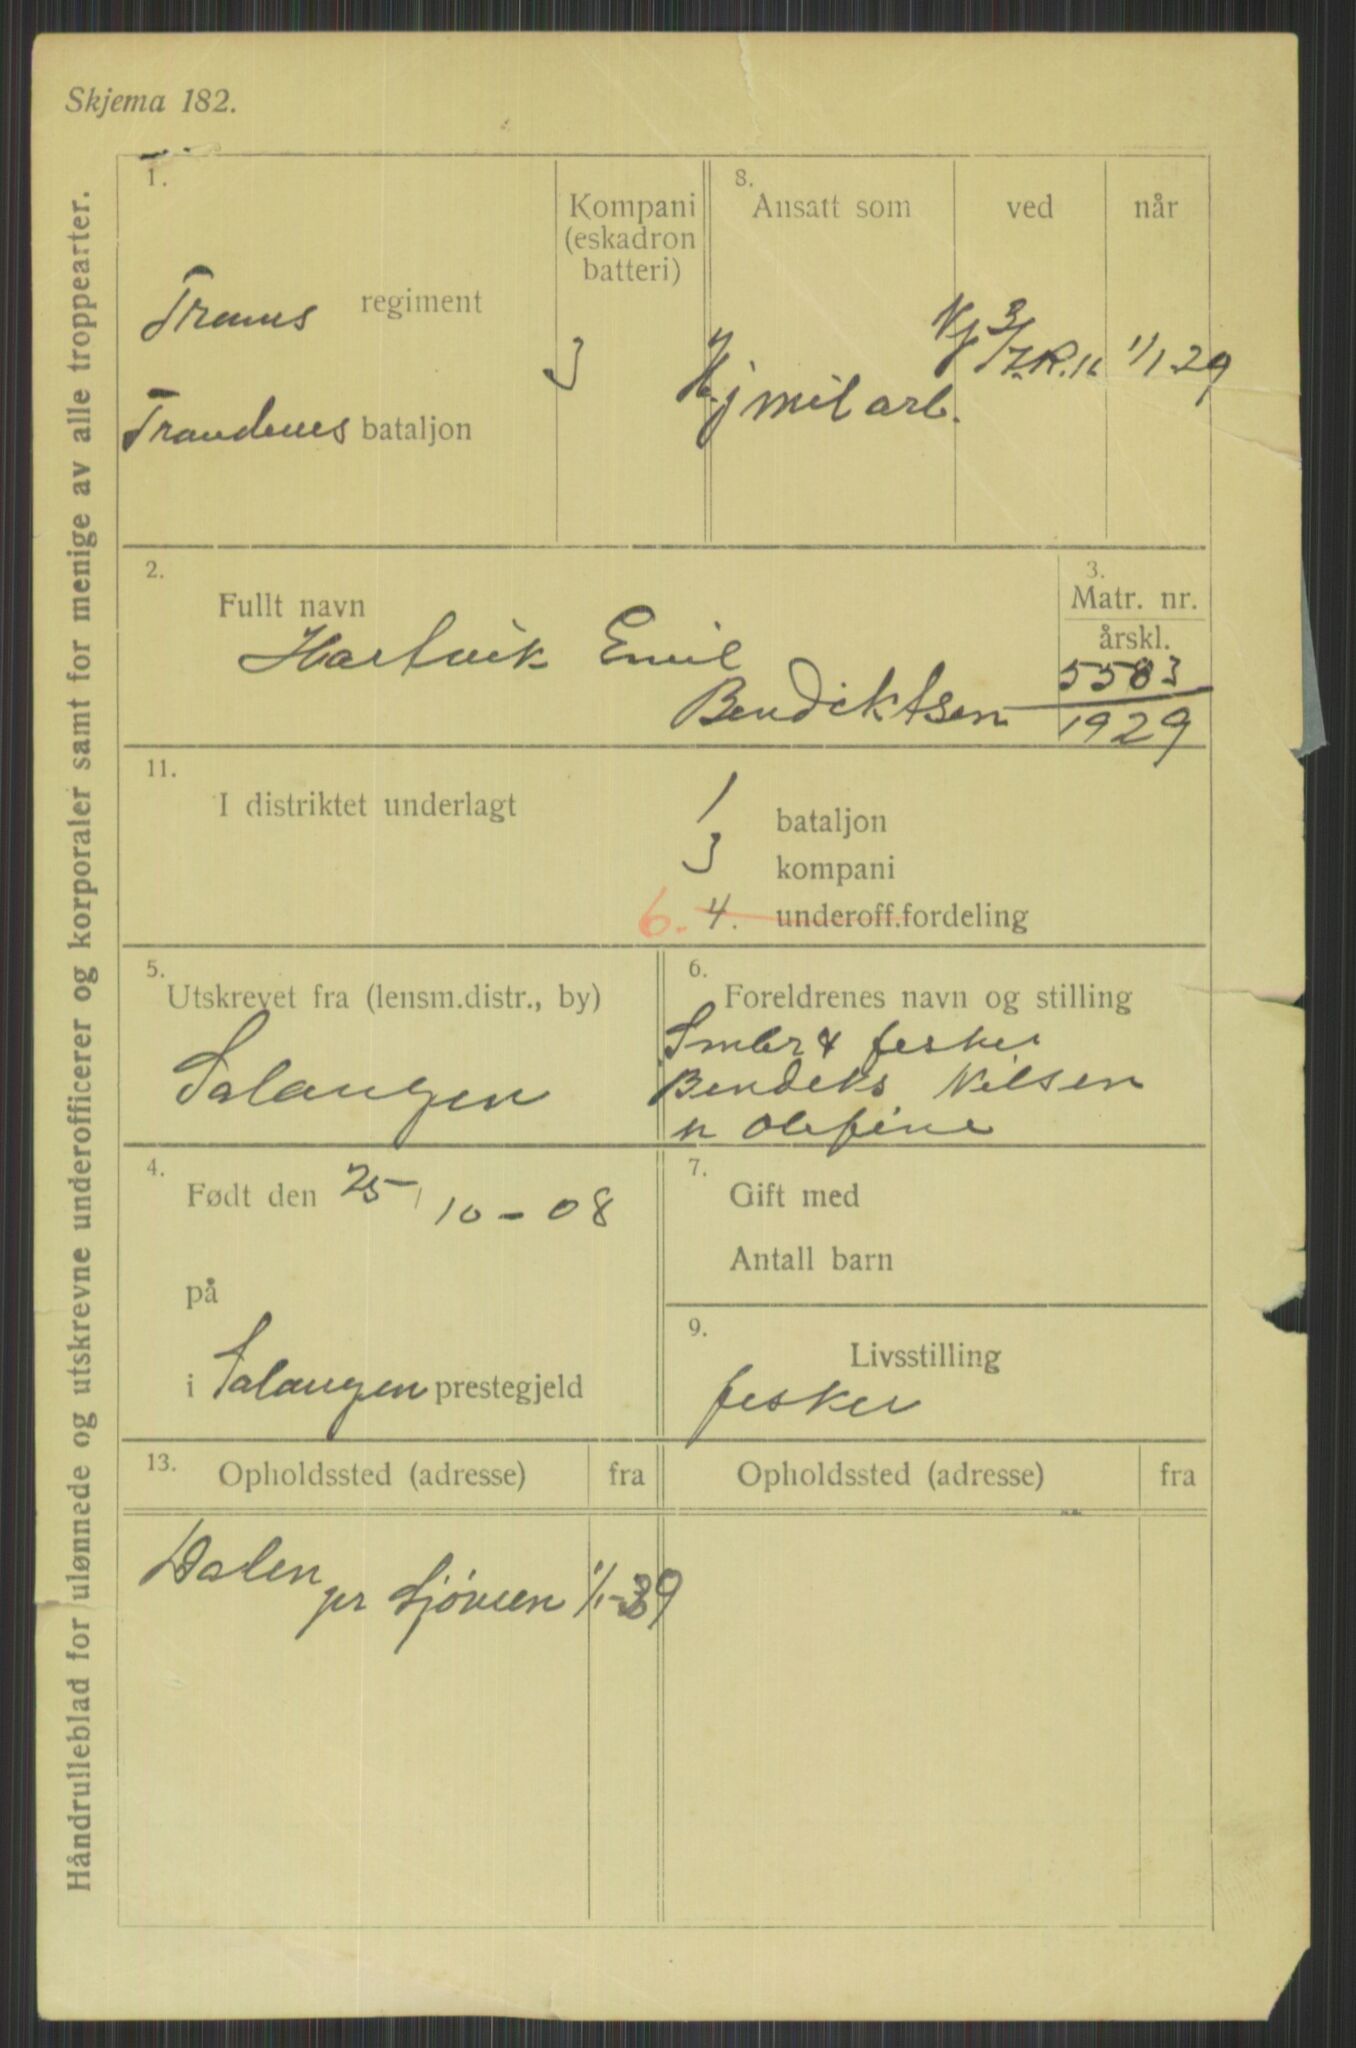 Skjema 182.
Håndrulleblad for ulønnede og utskrevne underofficerer og korporaler samt for menige av alle troppearter.
1.
Troms regiment
Trondenes bataljon
Kompani
(eskadron
batteri)
3
8.
Ansatt som
ved
når
Hj mil arb.
1/1-29
2.
Fullt navn
Hartvik Emil
Bendiktsen
3.
Matr. nr.
årskl.
5583
1929
11.
I distriktet underlagt
1 bataljon
3 kompani
6. 4. underoff.fordeling
5.
Utskrevet fra (lensm.distr., by)
Salangen
6.
Foreldrenes navn og stilling
Smbr & fisker
Bendiks Nilsen
n Olefine
4.
Født den 25/10-08
på
i Salangen prestegjeld
7.
Gift med
Antall barn
9.
Livsstilling
fisker
13.
Opholdssted (adresse)
fra
Opholdssted (adresse)
fra
Dalen
pr Sjøveien 1/1-39